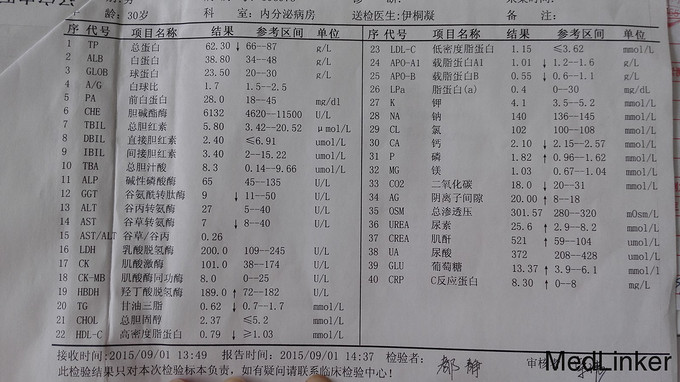 龄:30岁 科 室:内分泌病房 送检医生:伊桐凝 备 注:
序 代号 项目名称 结果 参考区间
1 TP 总蛋白 62.30 ↓ 66--87 g/L
2 ALB 白蛋白 38.80 34--48 g/L
3 GLOB 球蛋白 23.50 20--30 g/L
4 A/G 白球比 1.7 1.5--2.5
5 PA 前白蛋白 28.0 18--45 mg/dl
6 CHE 胆碱酯酶 6132 4620--11500 U/L
7 TBIL 总胆红素 5.80 3.42--20.52 μmol/L
8 DBIL 直接胆红素 2.40 ≤6.91 umol/L
9 IBIL 间接胆红素 3.40 2--15.22 umol/L
10 TBA 总胆汁酸 8.3 0.14--9.66 umol/L
11 ALP 碱性磷酸酶 65 45--135 U/L
12 GGT 谷氨酰转肽酶 9 ↓ 11--50 U/L
13 ALT 谷丙转氨酶 27 5--40 U/L
14 AST 谷草转氨酶 7 ↓ 8--40 U/L
15 AST/ALT 谷草/谷丙 0.26
16 LDH 乳酸脱氢酶 200.0 109--245 U/L
17 CK 肌酸激酶 101.0 38--174 U/L
18 CK-MB 肌酸酶同功酶 8.0 0--25 U/L
19 HBDH 羟丁酸脱氢酶 189.0 ↑ 72--182 U/L
20 TG 甘油三脂 0.62 ↓ 0.7--1.7 mmol/L
21 CHOL 总胆固醇 2.37 ≤5.2 mmol/L
22 HDL-C 高密度脂蛋白 0.79 ↓ ≥1.03 mmol/L
23 LDL-C 低密度脂蛋白 1.15 ≤3.62 mmol/L
24 APO-A1 载脂蛋白A1 1.01 ↓ 1.2--1.6 g/L
25 APO-B 载脂蛋白B 0.55 ↓ 0.6--1.1 g/L
26 LPa 脂蛋白(a) 0.4 0--30 mg/dL
27 K 钾 4.1 3.5--5.2 mmol/L
28 NA 钠 140 136--145 mmol/L
29 CL 氯 102 100--108 mmol/L
30 CA 钙 2.10 ↓ 2.15--2.57 mmol/L
31 P 磷 1.82 ↑ 0.96--1.62 mmol/L
32 MG 镁 1.03 0.67--1.04 mmol/L
33 CO2 二氧化碳 18.0 ↓ 20--31 mmol/L
34 AG 阴离子间隙 20.00 ↑ 8--18 mmol/L
35 OSM 总渗透压 301.57 280--320 mOsm/L
36 UREA 尿素 25.6 ↑ 2.9--8.2 mmol/L
37 CREA 肌酐 521 ↑ 59--104 umol/L
38 UA 尿酸 372 208--428 umol/L
39 GLU 葡萄糖 13.37 ↑ 3.9--6.1 mmol/l
40 CRP C反应蛋白 8.30 ↑ 0--8 mg/L
接收时间:2015/09/01 13:49 报告时间:2015/09/01 14:37 检验者: 都静 审核
此检验结果只对本次检验标本负责,如有疑问请联系临床检验中心!
MedLinker